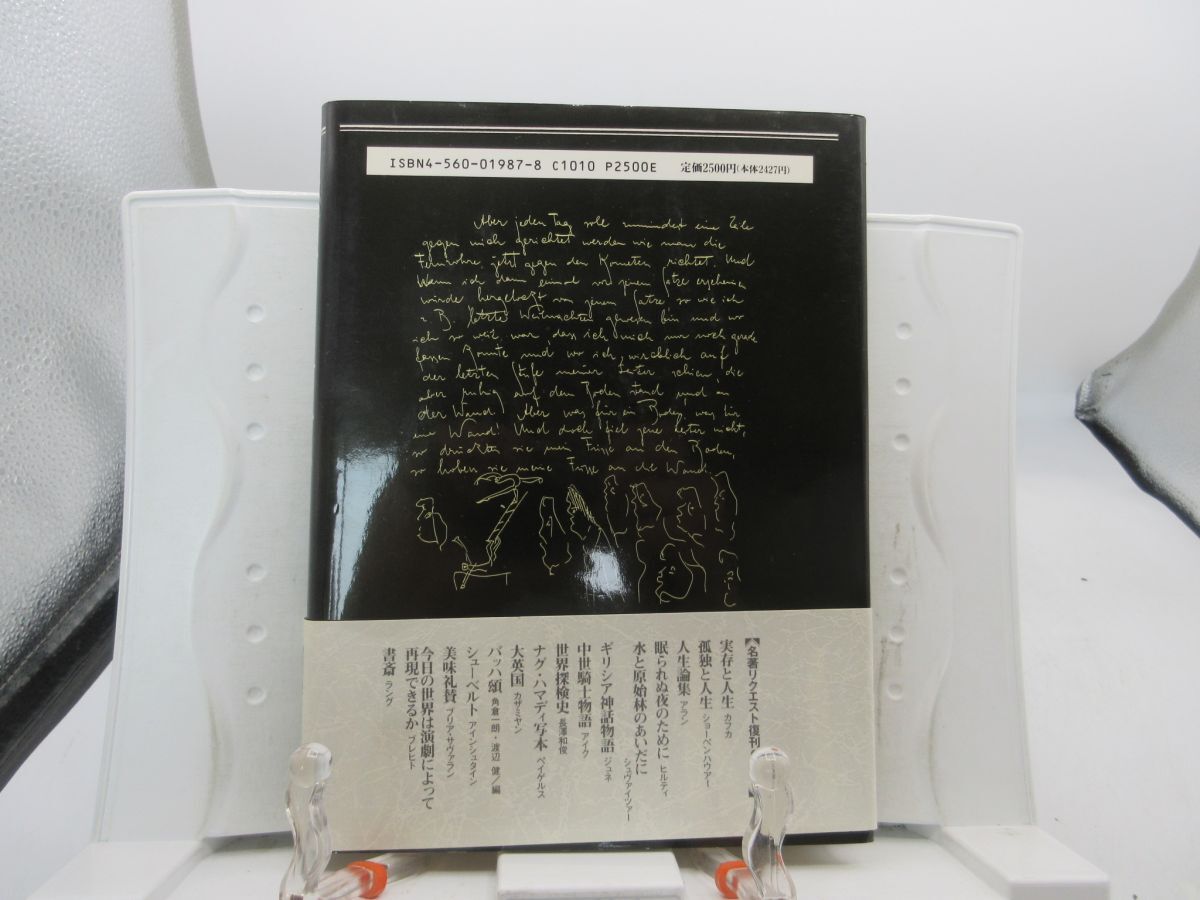 ISBN4-560-01987-8 C1010 P2500E 定価2500円(本体2427円)
Aber jeden Tag soll zumindest eine Zeile
gegen mich gerichtet werden wie man die
Fernrohre jetzt gegen den Kometen richtet. Und
Wenn ich dann einmal vor jenem Satze erscheinen
würde hergelockt von jenem Satze so wie ich
z. B. letzte Weihnachten gewesen bin und wo
ich so weit war, dass ich mich nur noch gerade
fassen konnte und wo ich wirklich auf
der letzten Stufe meiner Leiter schien, die
aber ruhig auf dem Boden stand und an
der Wand. Aber was für ein Boden, was für
eine Wand! Und doch fiel jene Leiter nicht,
so drückten sie meine Füsse an den Boden,
so hoben sie meine Füsse an die Wand.
【名著リクエスト復刊
実存と人生 カフカ
孤独と人生 ショーペンハウアー
人生論集 アラン
眠られぬ夜のために ヒルティ
水と原始林のあいだに シュヴァイツァー
ギリシア神話物語 ジュネ
中世騎士物語 アイク
世界探検史 長澤和俊
ナグ・ハマディ写本 ペイゲルス
大英国 カザミヤン
バッハ頌 角倉一朗・渡辺 健/編
シューベルト アインシュタイン
美味礼賛 ブリア・サヴァラン
今日の世界は演劇によって
再現できるか ブレヒト
書斎 ラング